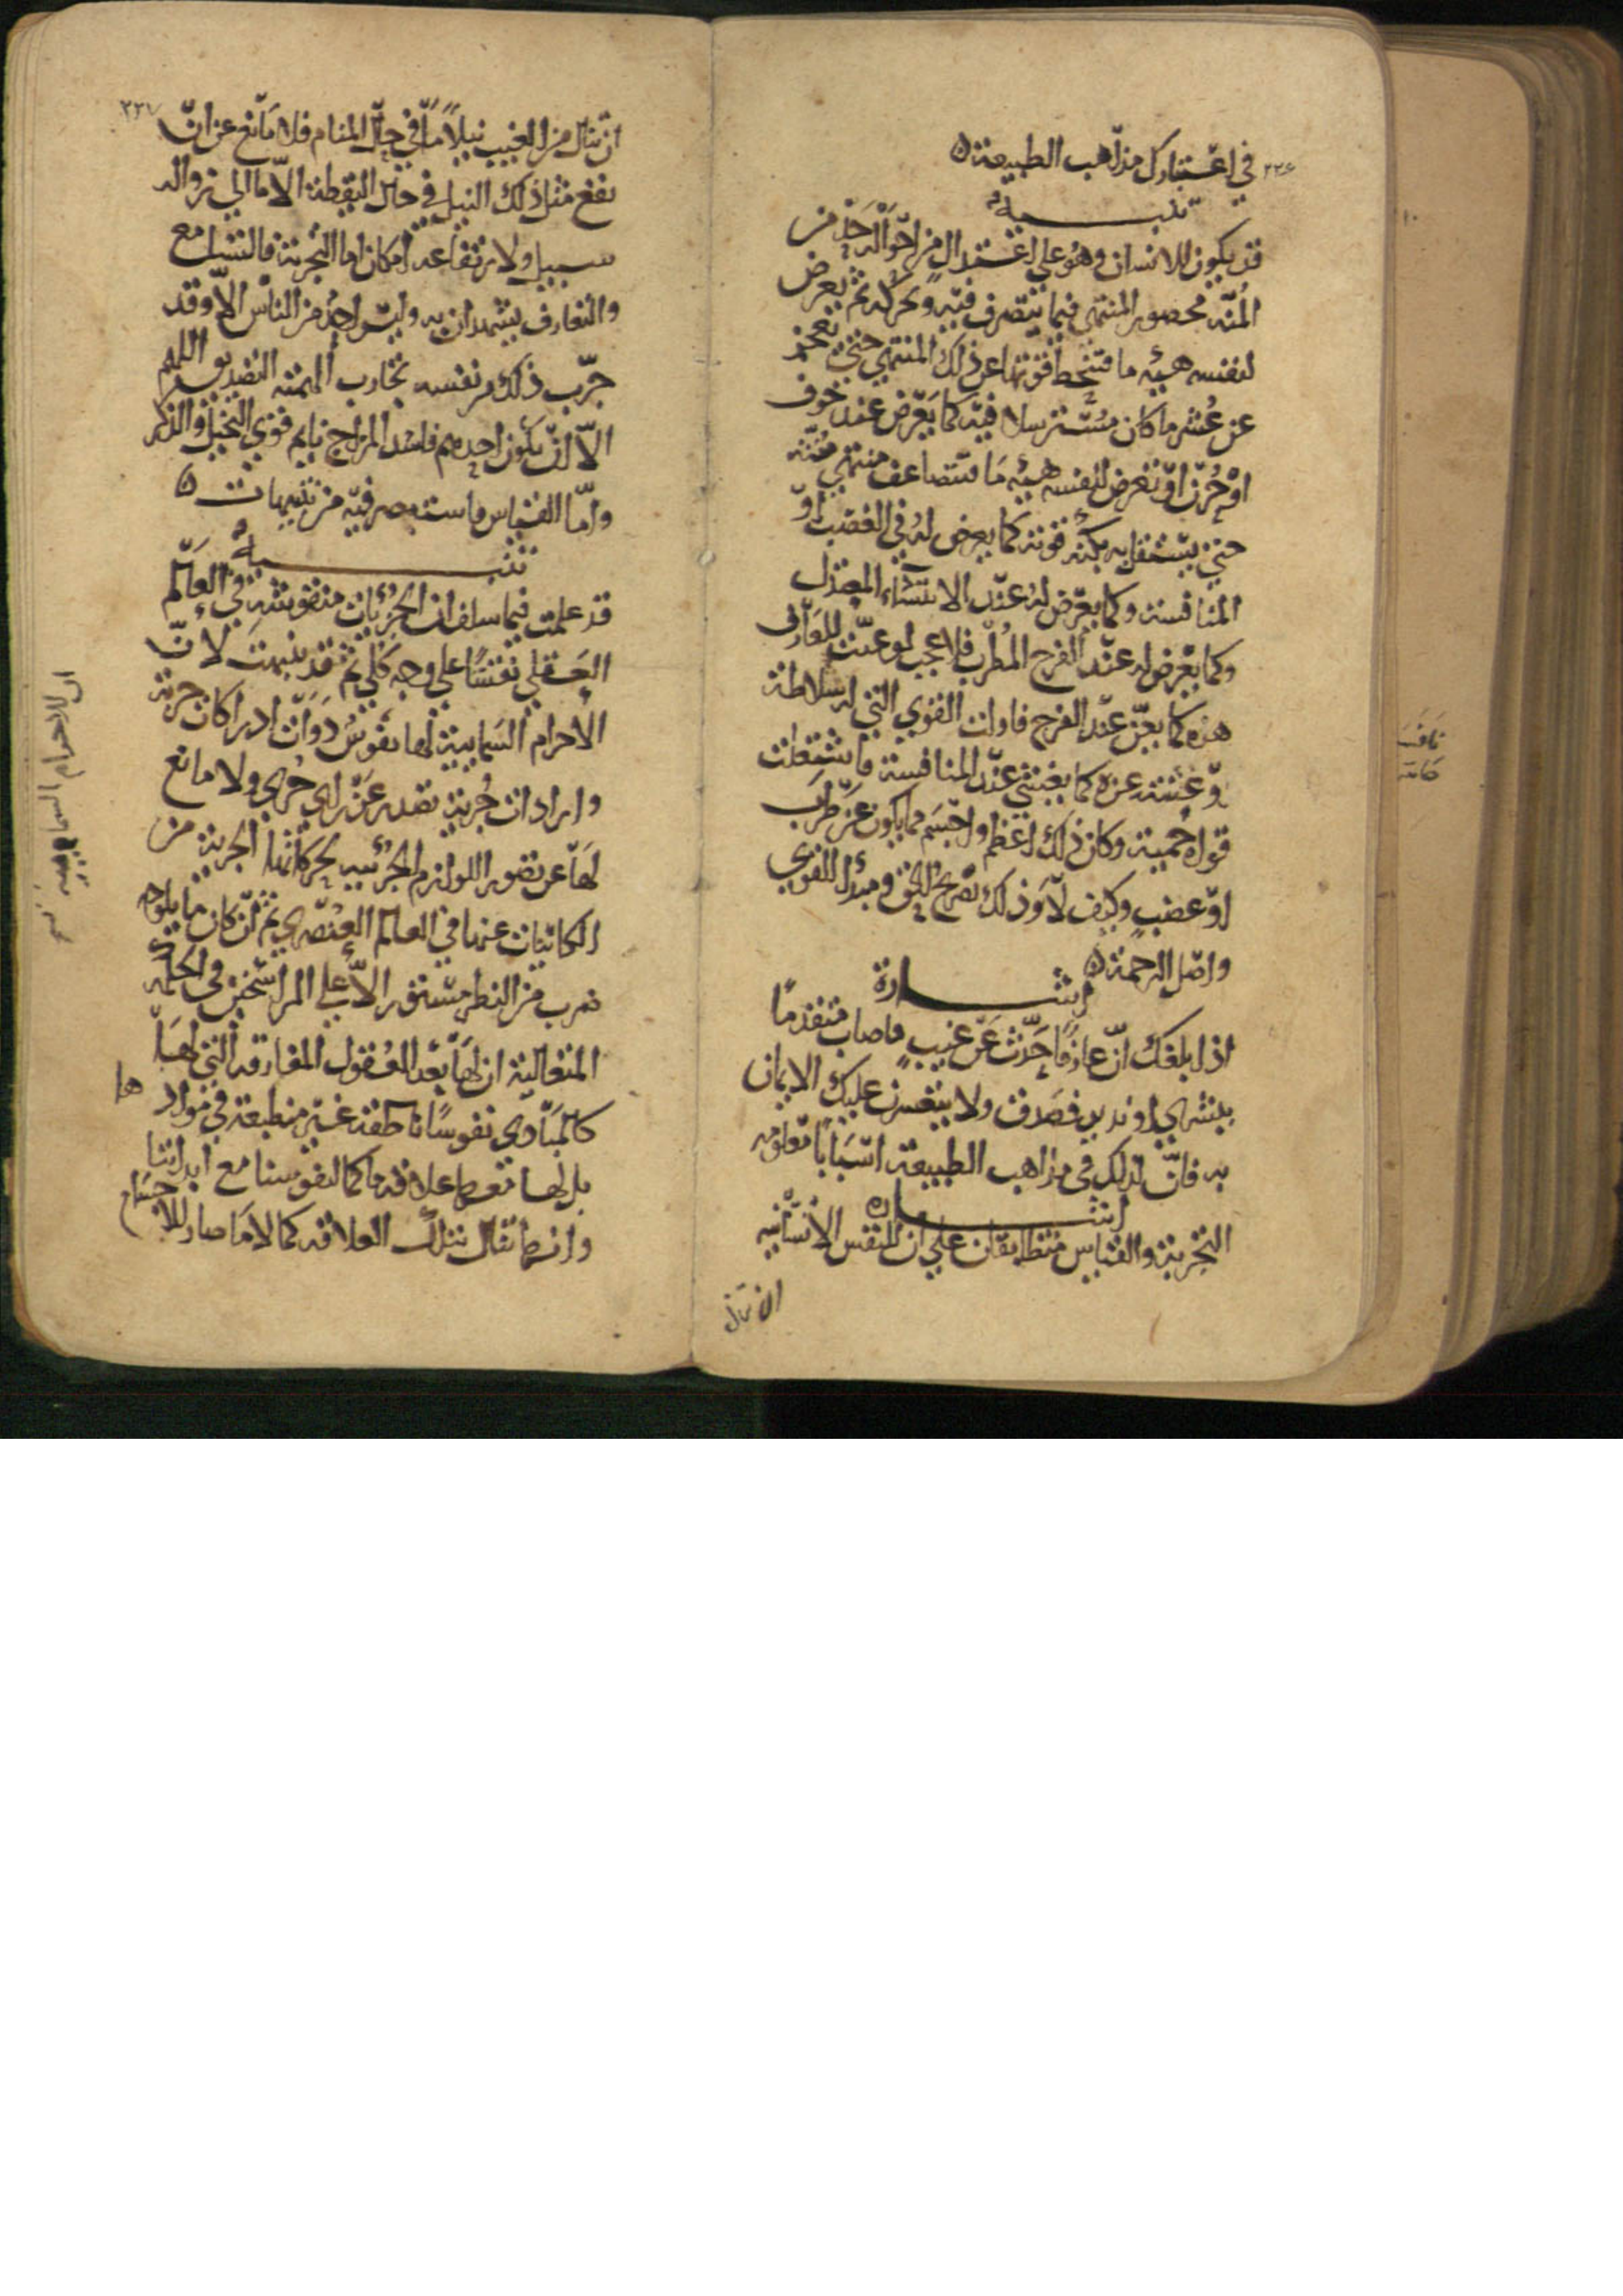 ٢٣٦
في اعتبارك مذاهب الطبيعة ٥
تنبيه
قد يكون للانسان وهو على اعتدال من احواله حد من
المُنّه محصور المنتهي فيما يتصرف فيه ويحركه ثم يعرض
لنفسه هيئه ما فتنحط قوتها عن ذلك المنتهي حتى تعجز
عن عُشر ما كان مسترسلا فيه كما يعرض عند خوف
او حُزن او تعرض لنفسه هيئه ما فتتضاعف منتهي منته
حتى يستقل به بكنه قوته كما يعرض له في الغضب او
المنافسة وكما يعرض له عند الانتشاء المعتدل
وكما يعرض له عند الفرح المُطرب فلا عجب لو عنّت للعارف
هزه كما يعنّ عند الفرح فاولت القوي التي له سلاطة
وغشيته عزه كما يغشي عند المنافسة فاشتعلت
قواه حمية وكان ذلك اعظم واجسم مما يكون عن طرب
او غضب وكيف لا وذلك بصريح الحق ومبدأ القوي
واصل الرحمة ٥
اشارة
اذا بلغك انّ عارفا حدّث عن غيب فاصاب متقدما
ببشري او نذير فصدق ولا يتعسرن عليك الايمان
به فانّ لذلك في مذاهب الطبيعة اسبابا معلومه
اشاره
التجربة والقياس متطابقان على ان للنفس الانسانيه
ان تنال
٢٣٧
ان تنال من الغيب نيلا مّا في حال المنام فلا مانع عن انّ
يقع مثل ذلك النيل في حال اليقظة الاّ ما الي زواله
سبيل ولارتفاعه امكان اما التجربة فالتسامع
والتعارف يشهدان به وليس احد من الناس الاّ وقد
جرّب ذلك من نفسه تجارب الهمته التصديق اللهم
الاّ ان يكون احدهم فاسد المزاج نايم قوي التخيل والذكر
وامّا القياس فاستبصر فيه من تنبيهات ٥
تنبيه
قد علمت فيما سلف ان الجزئيات منقوشة في العالَم
العقلي نقشا على وجه كلي ثم قد نبهت لانّ
الاجرام السماييّة لها نفوس ذوات ادراكات جزية
وارادات جُزية تصدر عن راي جزي ولا مانع
لها عن تصور اللوازم الجزئيه لحركاتها الجزية من
الكائنات عنها في العالم العنصري ثم انّ كان ما يلوحه
ضرب من النظر مستور الاّ علي الراسخين في الحكمه
المتعالية ان لها بعد العُقول المفارقه التي لها
كالمبادي نفوسا ناطقة غير منطبعة في موادها
بل لها معها علاقه ما كما لنفوسنا مع ابداننا
وانها تنال بتلك العلاقه كمالا ما صار للاجسام